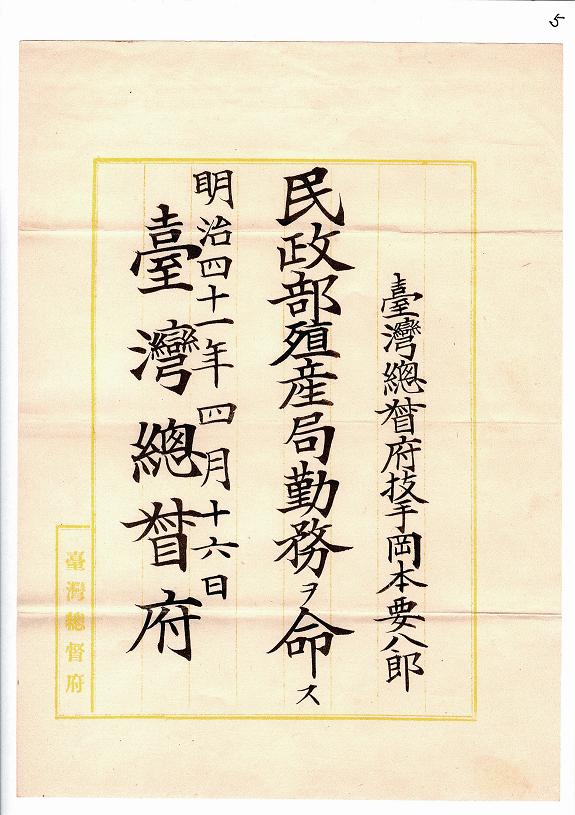 5
臺灣總督府技手岡本要八郎
民政部殖産局勤務ヲ命ス
明治四十一年四月十六日
臺灣總督府
臺灣總督府